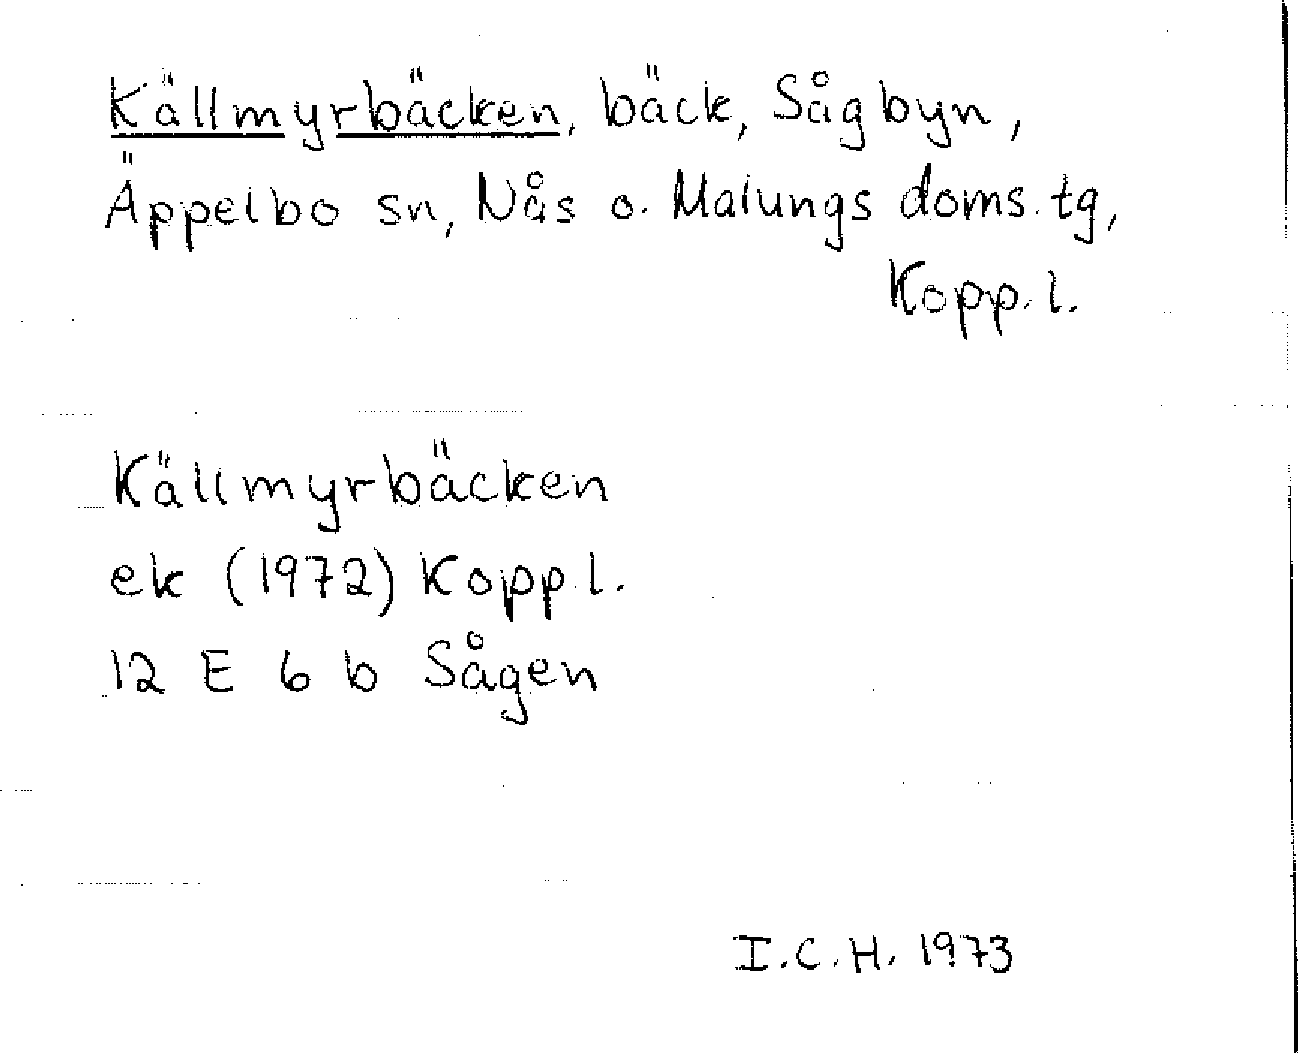 Källmyrbäcken, bäck, Sågbyn,
Äppelbo sn, Nås o. Malungs doms.tg,
Kopp.l.
Källmyrbäcken
ek (1972) Kopp.l.
12 E 6 b Sågen
I.C.H. 1973